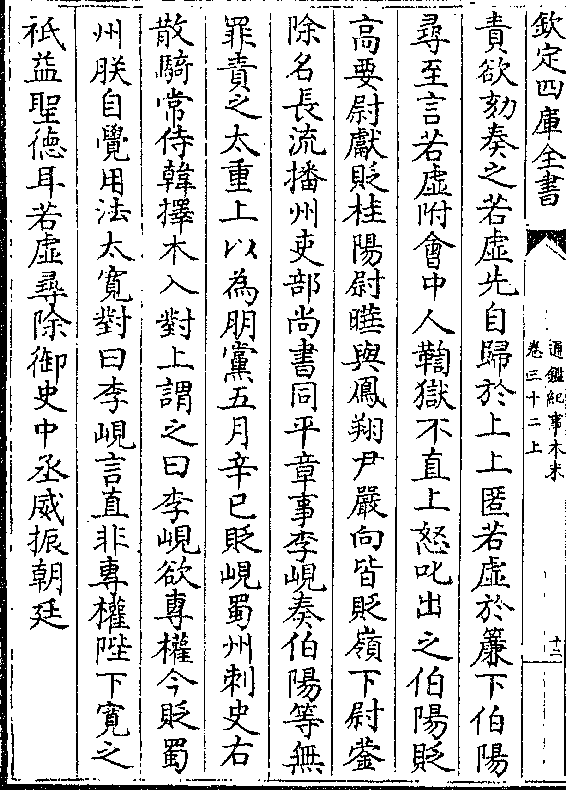 欽定四庫全書
通鑑紀事本末
卷三十二上
十二
責欲劾奏之若虛先自歸於上上匿若虛於簾下伯陽
尋至言若虛附會中人鞫獄不直上怒叱出之伯陽貶
高要尉獻貶桂陽尉曄與鳳翔尹嚴向皆貶嶺下尉蓥
除名長流播州吏部尚書同平章事李峴奏伯陽等無
罪責之太重上以為朋黨五月辛巳貶峴蜀州刺史右
散騎常侍韓擇木入對上謂之曰李峴欲專權今貶蜀
州朕自覺用法太寛對曰李峴言直非專權陛下寛之
祇益聖德耳若虛尋除御史中丞威振朝廷